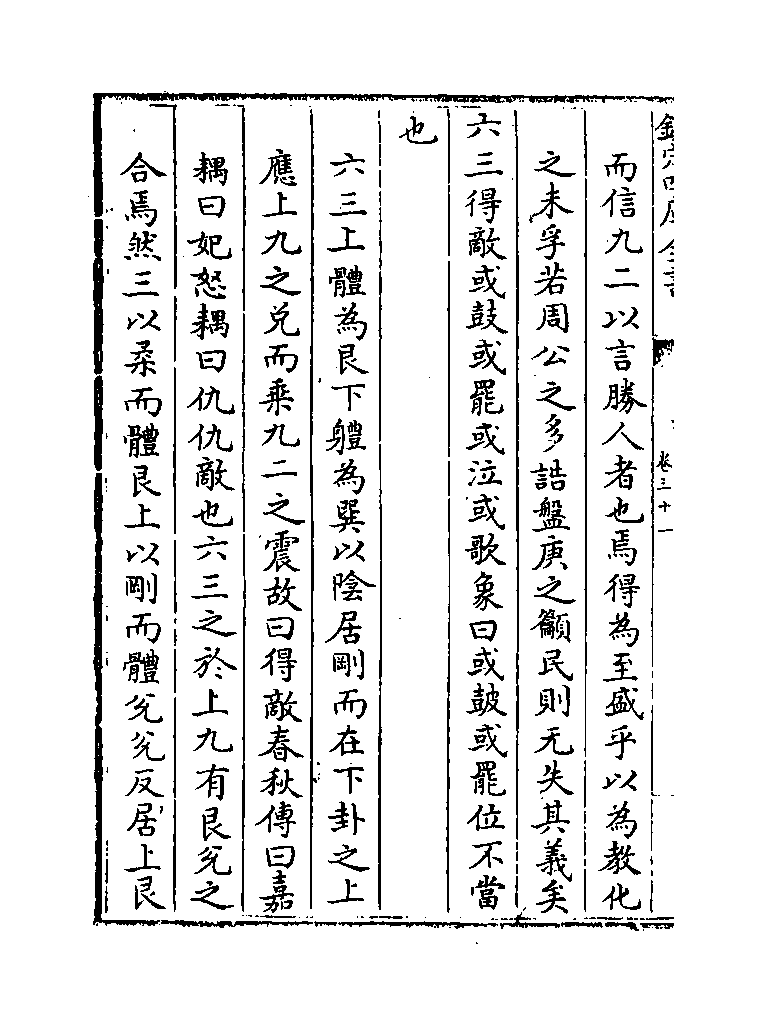 欽定四庫全書
卷三十一
而信九二以言勝人者也焉得為至盛乎以為教化
之未孚若周公之多誥盤庚之籲民則无失其義矣
六三得敵或鼓或罷或泣或歌象曰或鼓或罷位不當
也
六三上體為艮下體為巽以陰居剛而在下卦之上
應上九之兌而乘九二之震故曰得敵春秋傳曰嘉
耦曰妃怨耦曰仇仇敵也六三之於上九有艮兌之
合焉然三以柔而體艮上以剛而體兌兌反居上艮